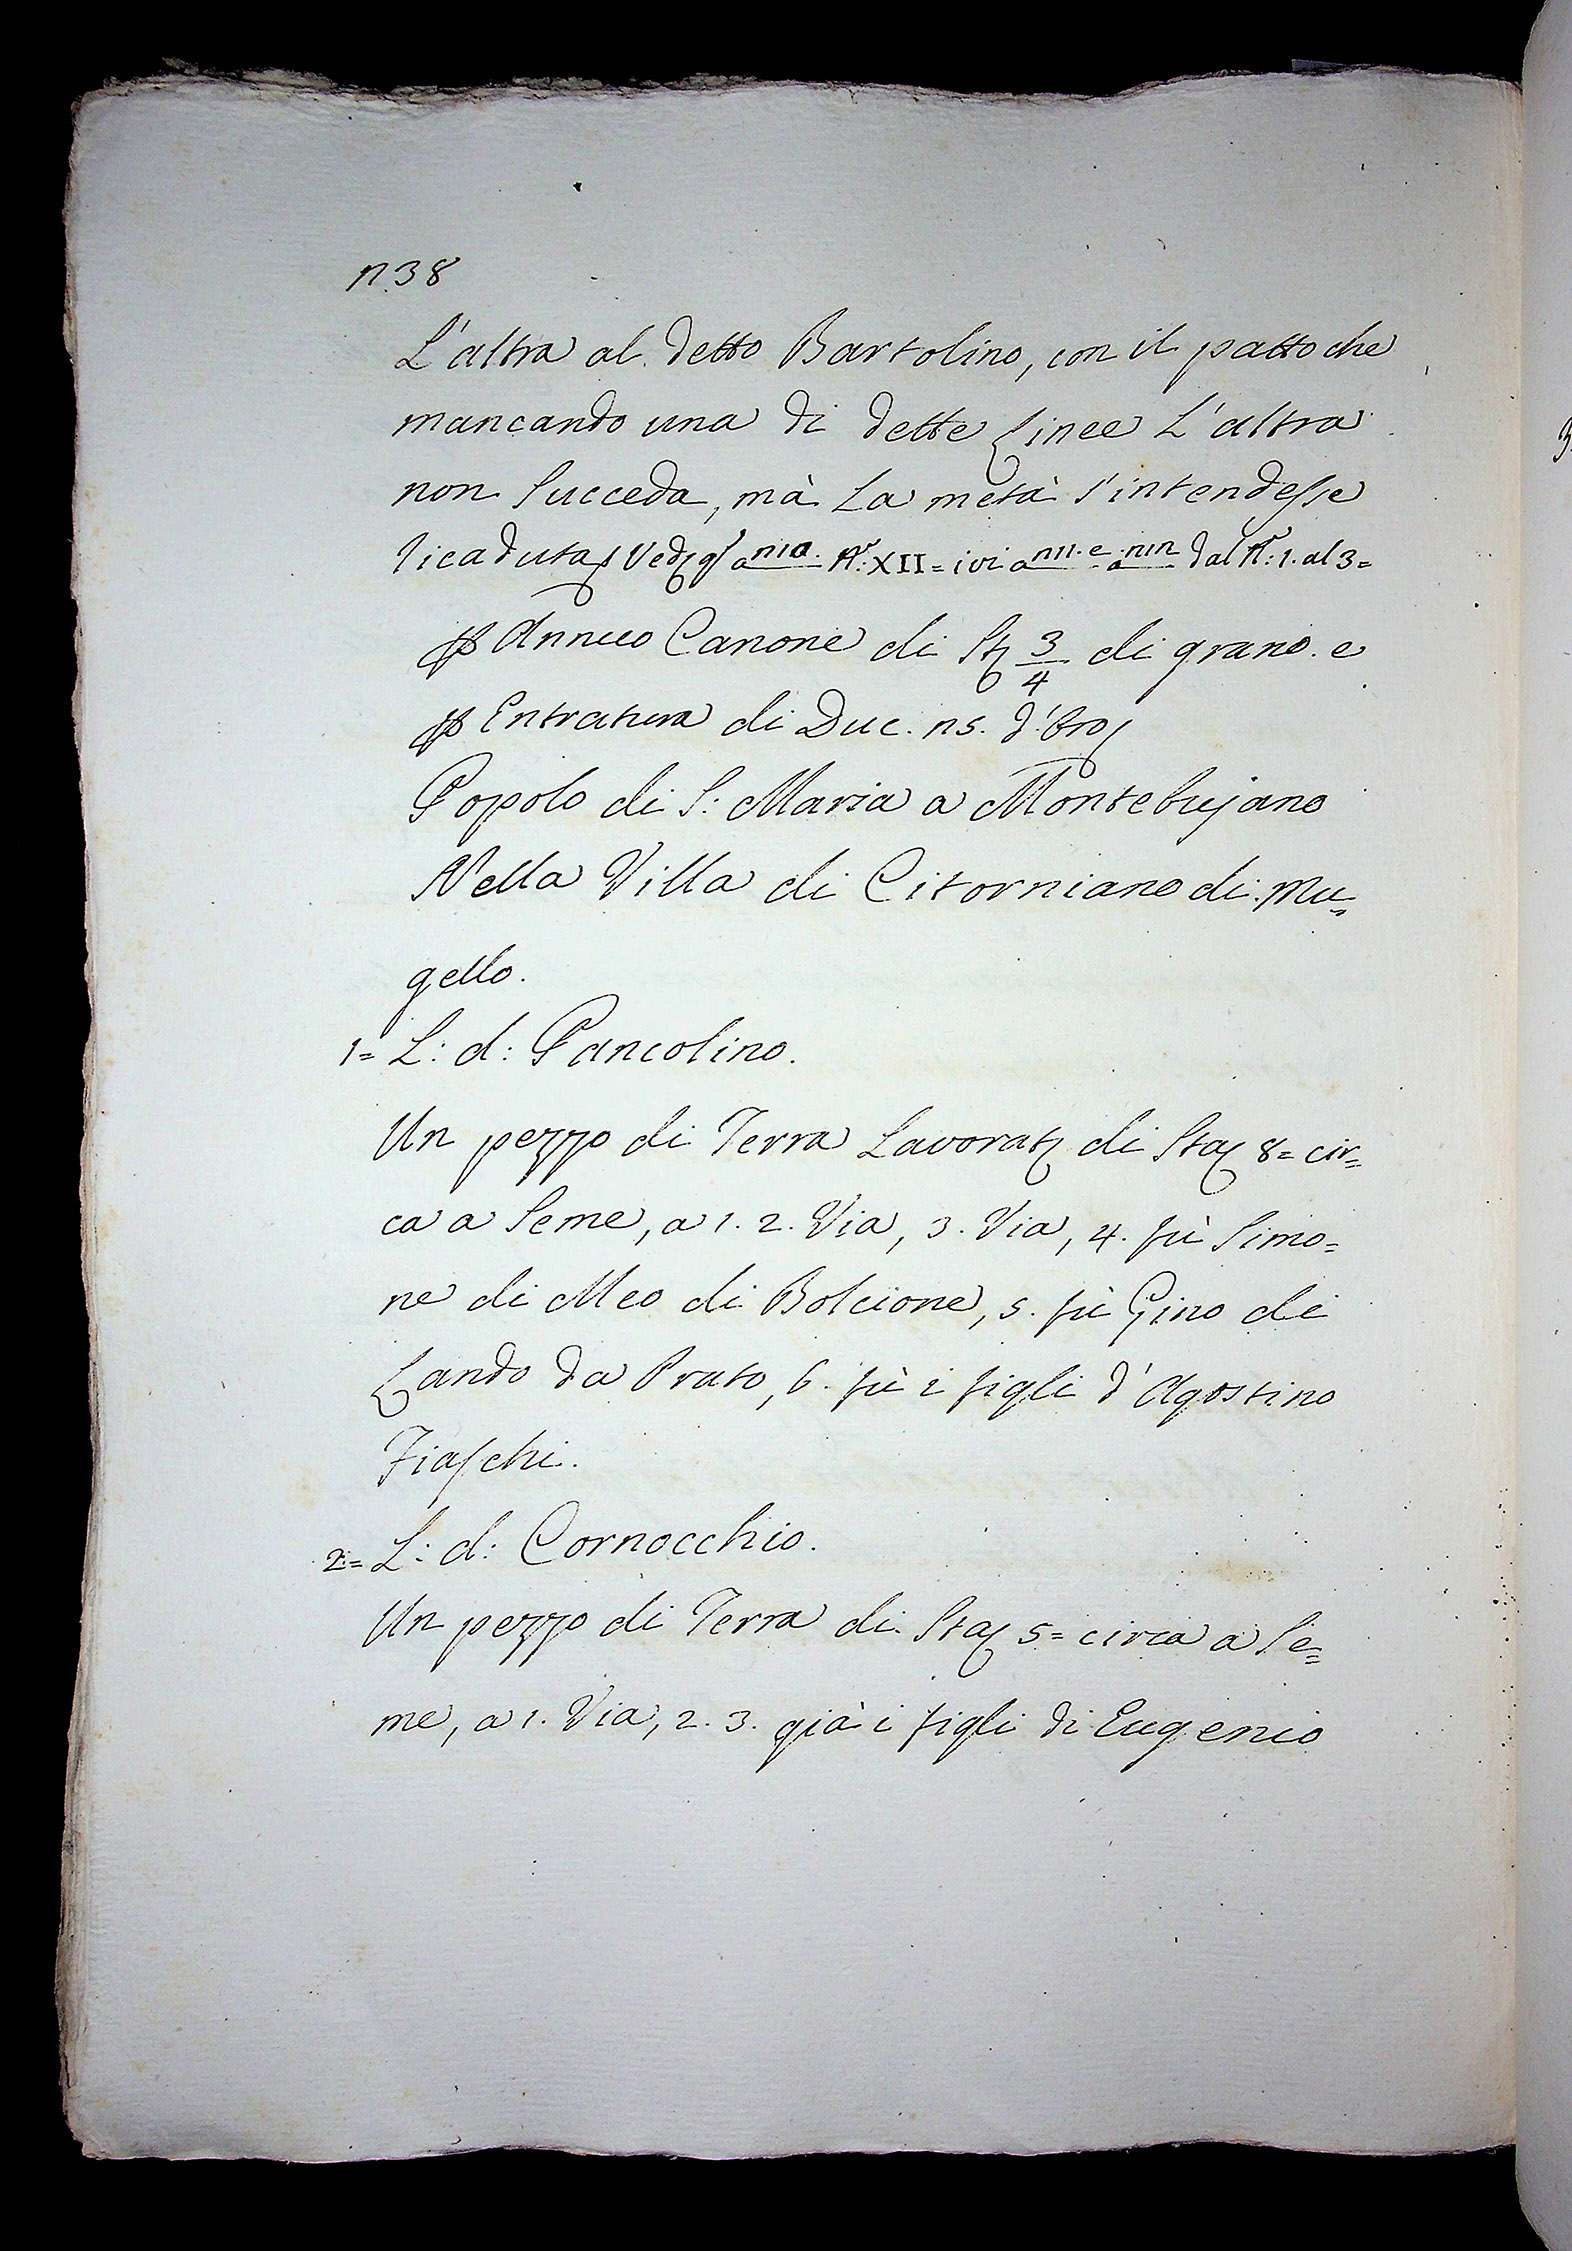 n. 38
L'altra al detto Bartolino, con il patto che
mancando una di dette Linee L'altra
non Succeda, mà La metà s'intendesse
ricaduta Ved. N.º: XII = ivi dal N.º: 1. al 3=
p Annuo Canone di St 3/4 di grano. e
p Entratura di Duc. n5. d'Oro
Popolo di S: Maria a Montebujano
Nella Villa di Citorniano di Mu=
gello.
1= L: d: Pancolino.
Un pezzo di Terra Lavorat di Sta 8= cir=
ca a Seme, a 1. 2. Via, 3. Via, 4. fù Simo=
ne di Meo di Bolcione, 5. fù Gino di
Lando da Prato, 6. fù i figli d'Agostino
Fiaschi.
2= L: d: Cornocchio.
Un pezzo di Terra di Sta 5= circa a Se=
me, a 1. Via, 2. 3. già i figli di Eugenio